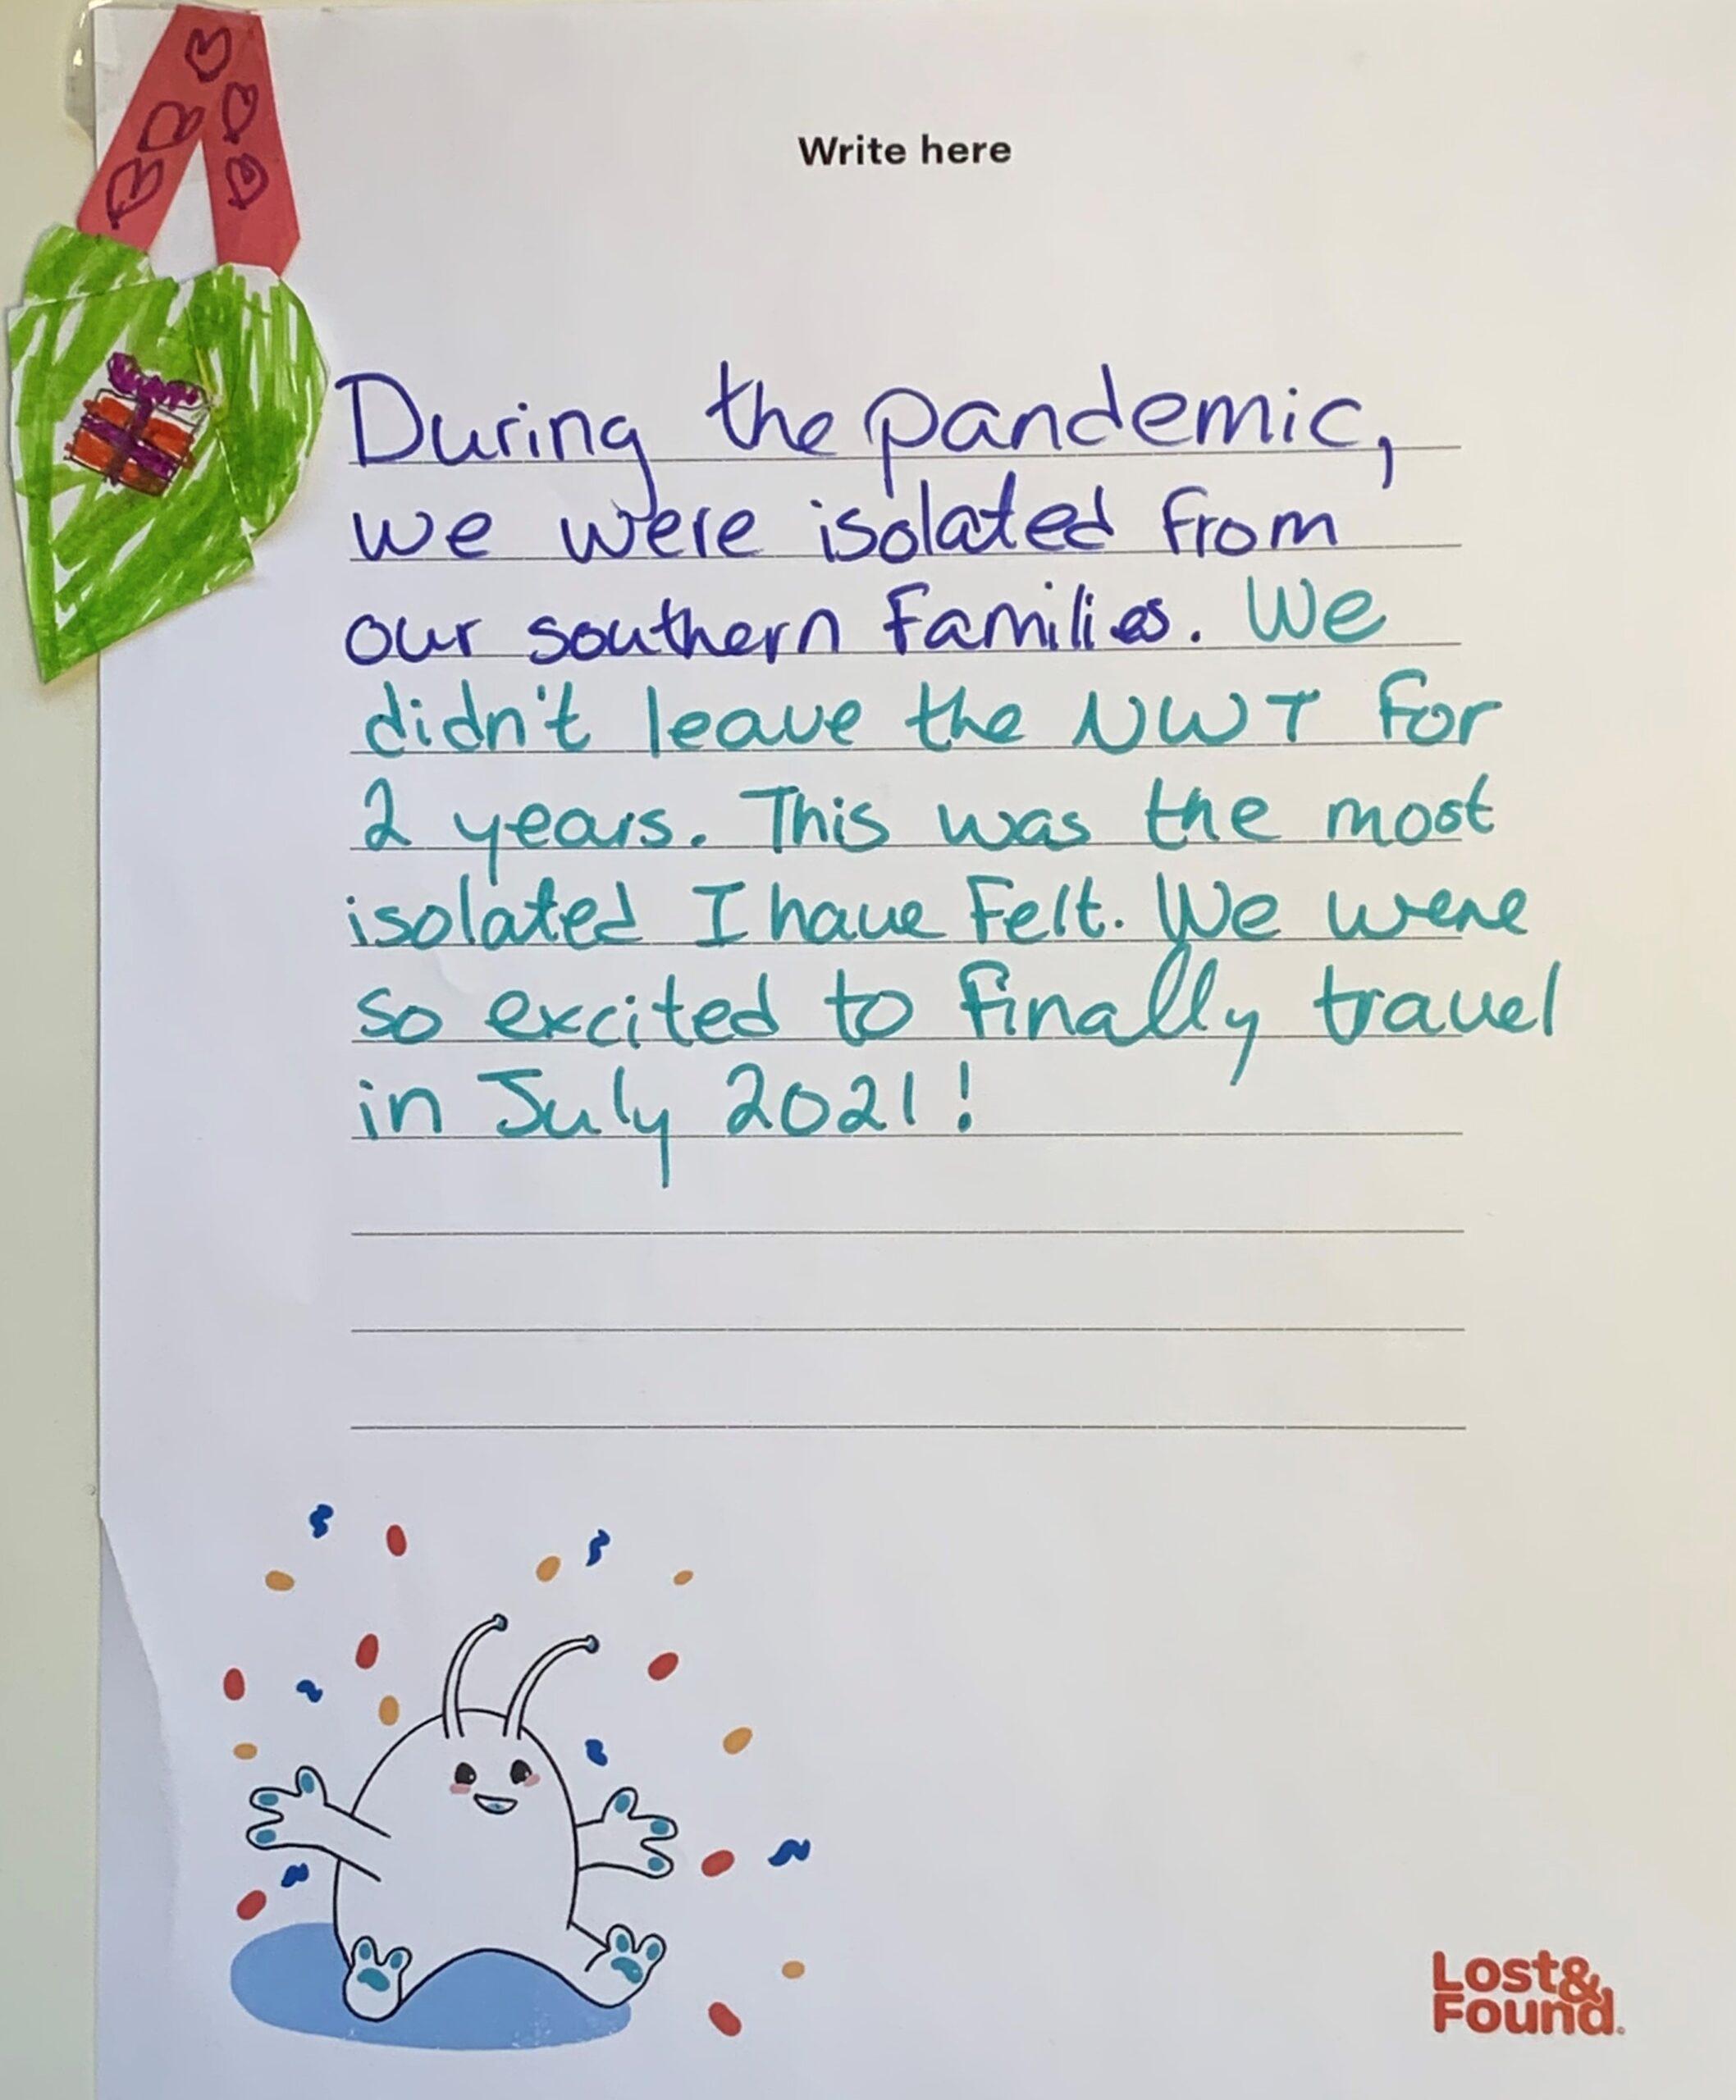 Write here
During the pandemic,
we were isolated from
our southern families. We
didn't leave the NWT for
2 years. This was the most
isolated I have felt. We were
so excited to finally travel
in July 2021!
Lost&
Found.